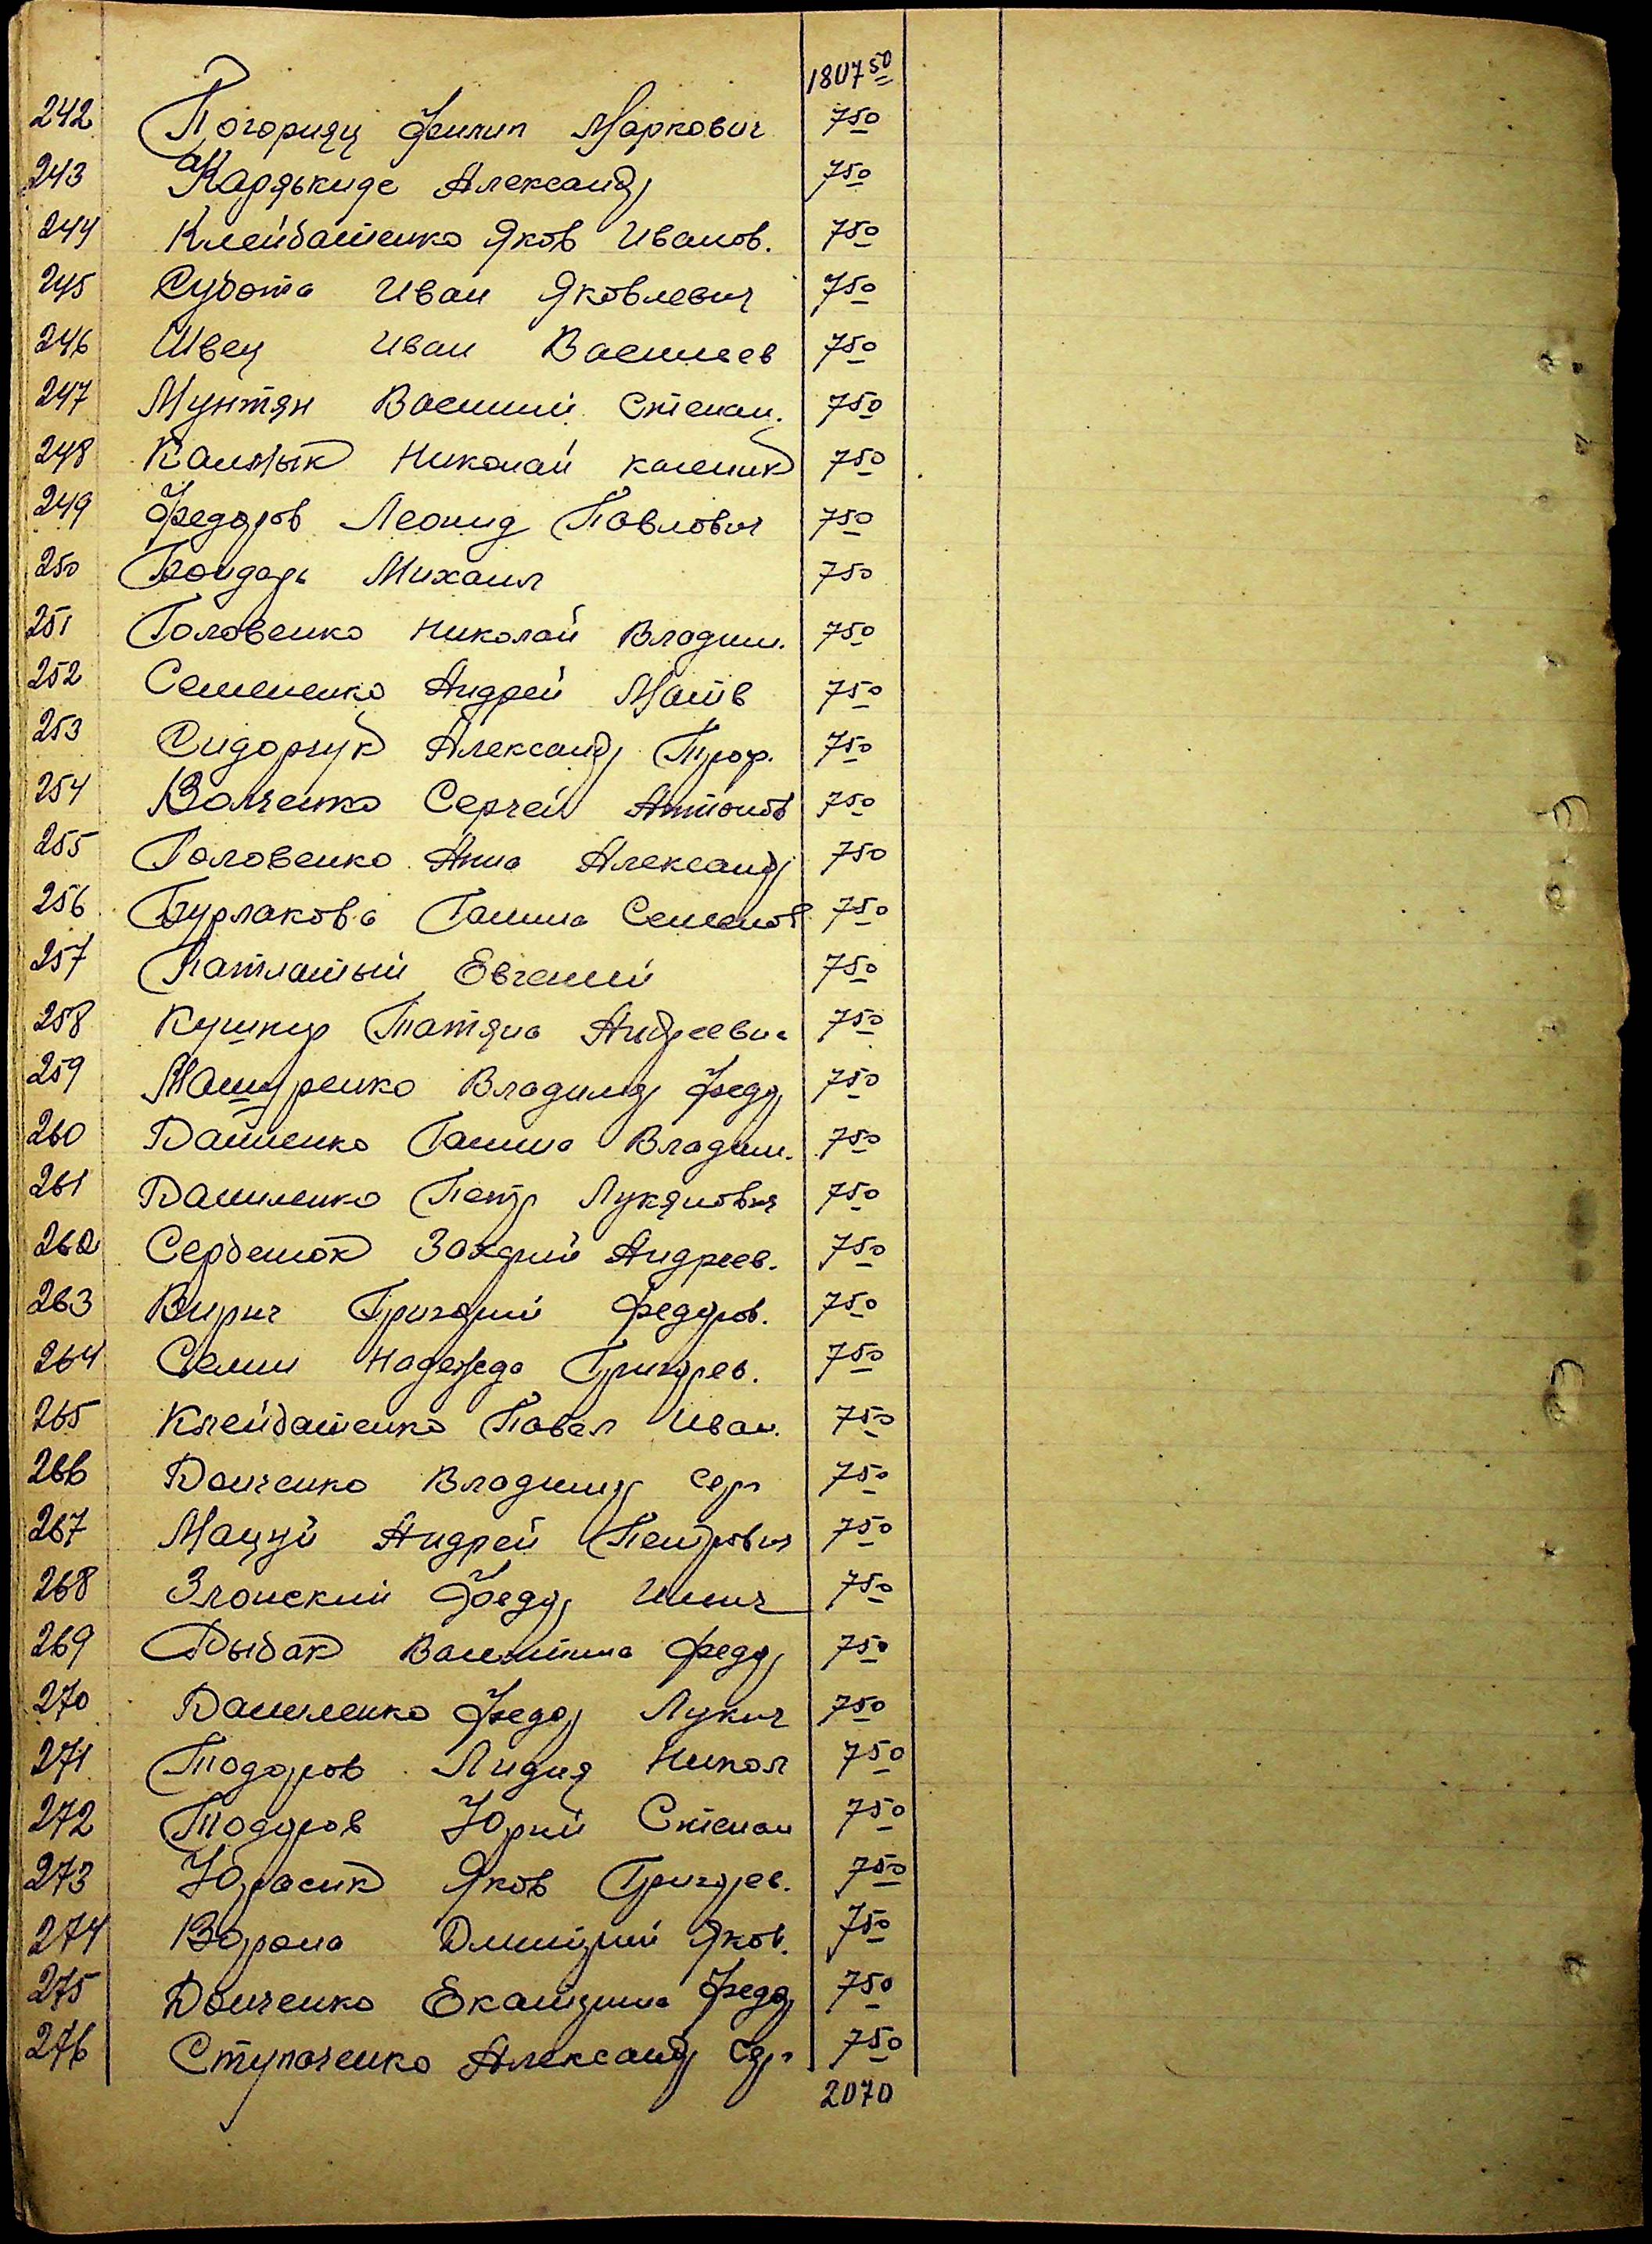 1807 50
242 Погориляц Филип Маркович 7 50
243 Александр 7 50
244 Клейбатенко Яков Иванов. 7 50
245 Субота Иван Яковлевич 7 50
246 Швец Иван Васильев 7 50
247 Мунтян Василий Степан. 7 50
248 Калмык Николай 7 50
249 Федоров Леонид Павлович 7 50
250 Бондарь Михаил 7 50
251 Головенко Николай Владим. 7 50
252 Семененко Андрей Матв 7 50
253 Сидорчук Александр Троф. 7 50
254 Волченко Сергей Антонов 7 50
255 Головенко Анна Александр 7 50
256 Бурлакова Галина Семенов 7 50
257 Патлатый Евгений 7 50
258 Кушнир Татяна Андреевна 7 50
259 Машуренко Владимир Федор 7 50
260 Галина Владим. 7 50
261 Даниленко Петр Лукянович 7 50
262 Сербенюк Захарий Андреев. 7 50
263 Вирич Григорий Федоров. 7 50
264 Надежда Григорев. 7 50
265 Клейбатенко Павел Иван. 7 50
266 Донченко Владимир Сер 7 50
267 Мацуй Андрей Петрович 7 50
268 Злонский Федор Ильич 7 50
269 Рыбак Валентина Федор 7 50
270 Даниленко Федор Лукич 7 50
271 Тодоров Лидия Никол 7 50
272 Тодоров Юрий Степан 7 50
273 Юрасик Яков Григорев. 7 50
274 Ворона Дмитрий Яков. 7 50
275 Донченко Екатерина Федор 7 50
276 Ступаченко Александр Сер 7 50
2070